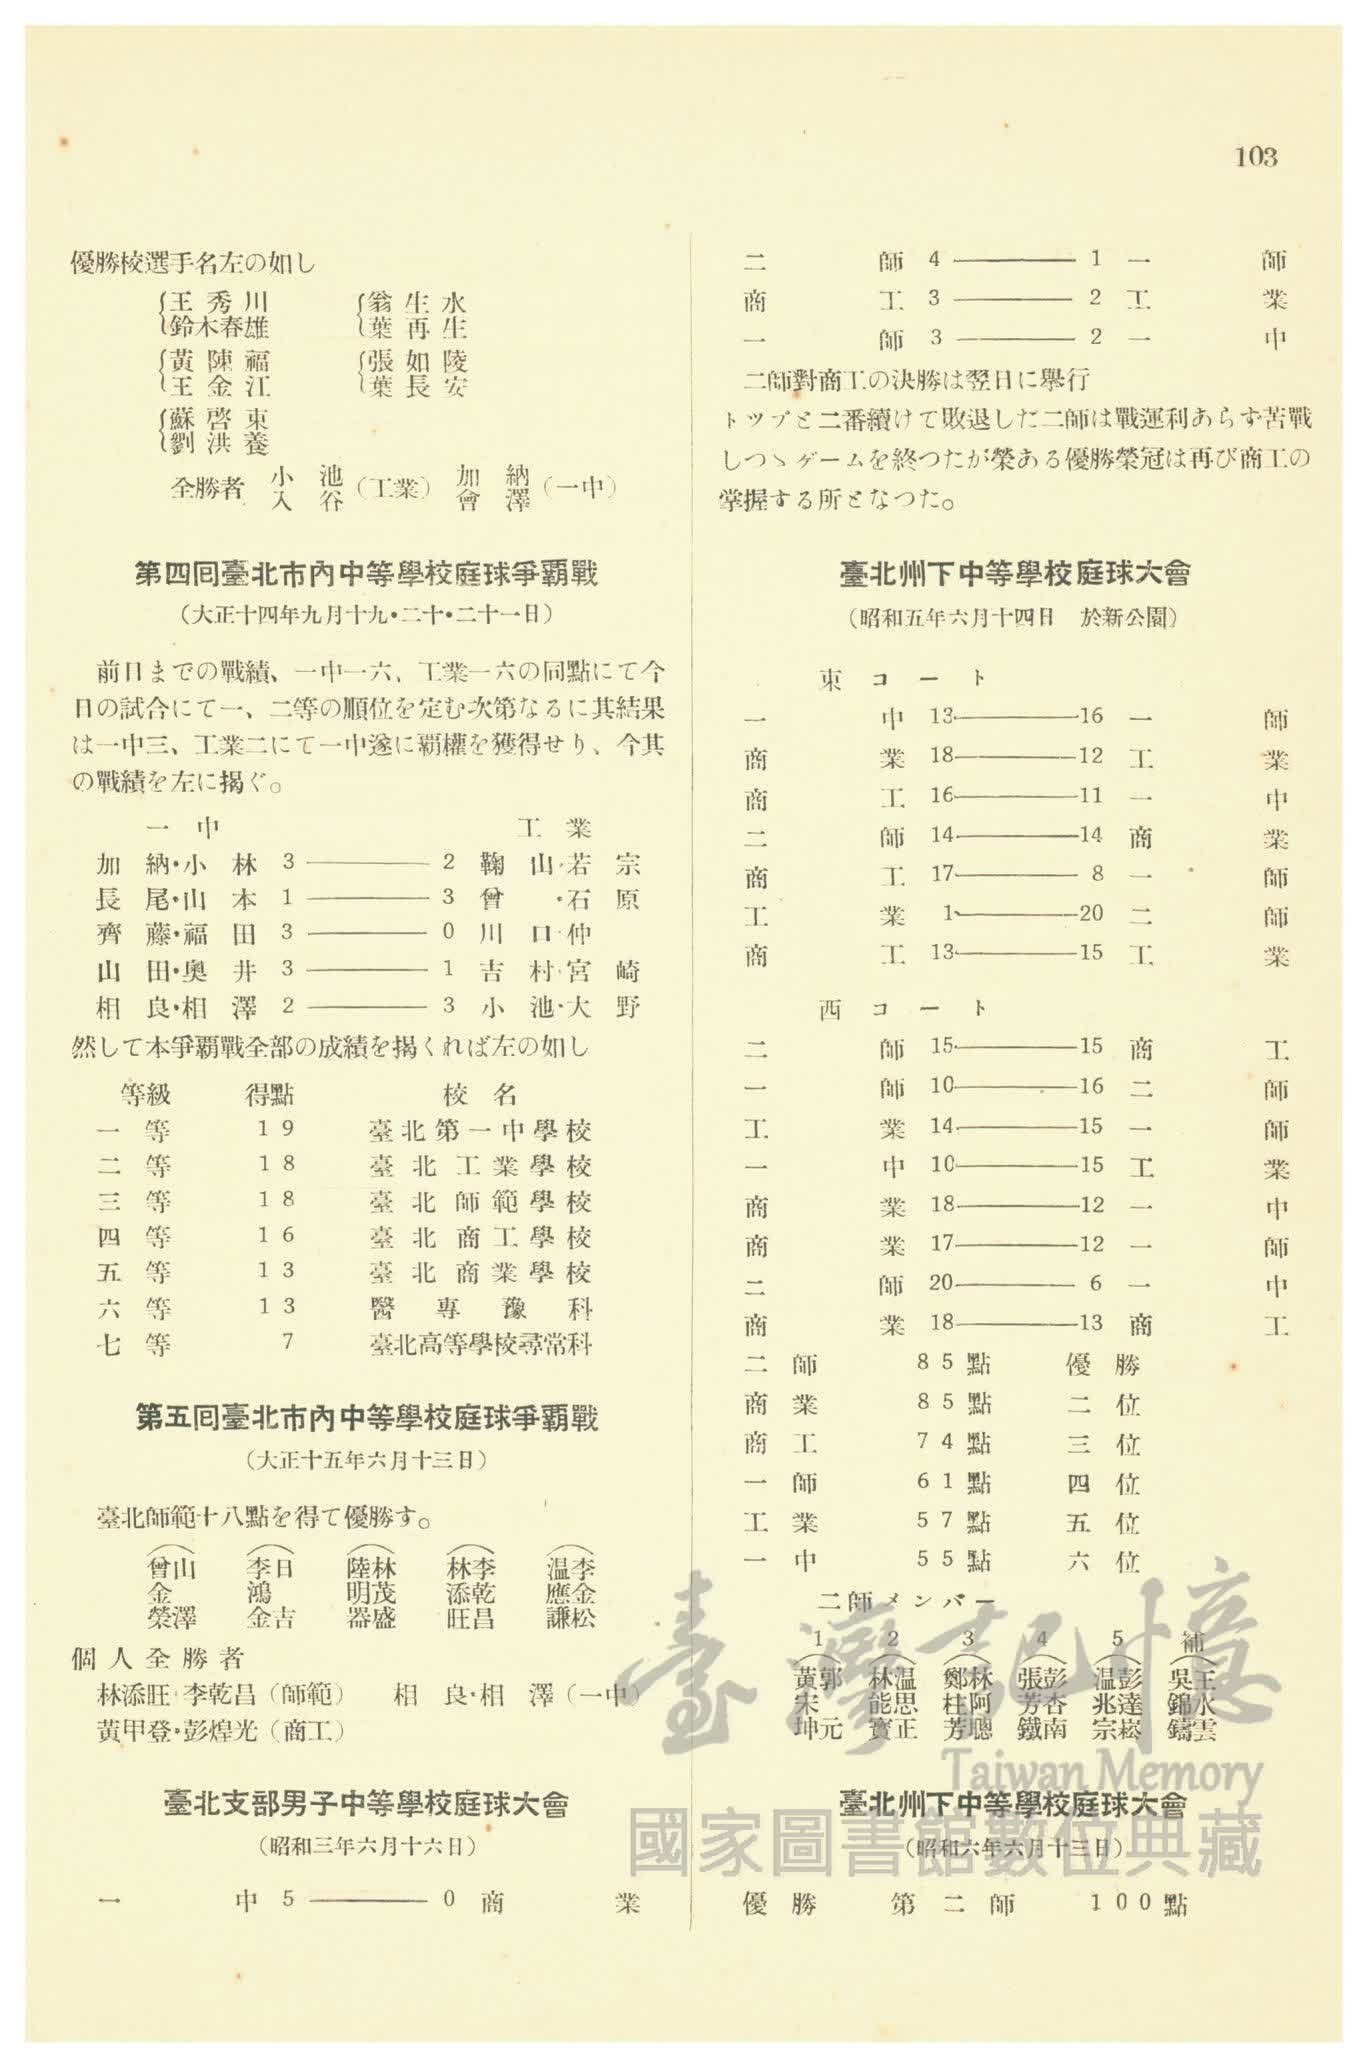 103
優勝校選手名左の如し
王秀川 翁生水
鈴木春雄 葉再生
黃陳福 張如陵
王金江 葉長安
蘇啓東
劉洪養
全勝者 小池 入谷(工業) 加納 會澤(一中)
第四回臺北市內中等學校庭球爭覇戰
(大正十四年九月十九・二十・二十一日)
前日までの戰績、一中一六、工業一六の同點にて今
日の試合にて一、二等の順位を定む次第なるに其結果
は一中三、工業二にて一中遂に覇權を獲得せり、今其
の戰績を左に揭ぐ。
一中 工業
加納・小林 3 ―― 2 鞠山・若宗
長尾・山本 1 ―― 3 曾・石原
齊藤・福田 3 ―― 0 川口・仲
山田・奧井 3 ―― 1 吉村・宮崎
相良・相澤 2 ―― 3 小池・大野
然して本爭覇戰全部の成績を揭くれば左の如し
等級 得點 校名
一等 19 臺北第一中學校
二等 18 臺北工業學校
三等 18 臺北師範學校
四等 16 臺北商工學校
五等 13 臺北商業學校
六等 13 醫專豫科
七等 7 臺北高等學校尋常科
第五回臺北市內中等學校庭球爭覇戰
(大正十五年六月十三日)
臺北師範十八點を得て優勝す。
曾金榮 山澤 李鴻金 日吉 陸明器 林茂盛 林添旺 李乾昌 温應謙 李金松
個人全勝者
林添旺・李乾昌(師範) 相良・相澤(一中)
黃甲登・彭煌光(商工)
臺北支部男子中等學校庭球大會
(昭和三年六月十六日)
一中 5 ―― 0 商業
二師 4 ―― 1 一師
商工 3 ―― 2 工業
一師 3 ―― 2 一中
二師對商工の決勝は翌日に擧行
トツプと二番續けて敗退した二師は戰運利あらず苦戰
しつゝゲームを終つたが榮ある優勝榮冠は再び商工の
掌握する所となつた。
臺北州下中等學校庭球大會
(昭和五年六月十四日 於新公園)
東コート
一中 13 ―― 16 一師
商業 18 ―― 12 工業
商工 16 ―― 11 一中
二師 14 ―― 14 商業
商工 17 ―― 8 一師
工業 1 ―― 20 二師
商工 13 ―― 15 工業
西コート
二師 15 ―― 15 商工
一師 10 ―― 16 二師
工業 14 ―― 15 一師
一中 10 ―― 15 工業
商業 18 ―― 12 一中
商業 17 ―― 12 一師
二師 20 ―― 6 一中
商業 18 ―― 13 商工
二師 85點 優勝
商業 85點 二位
商工 74點 三位
一師 61點 四位
工業 57點 五位
一中 55點 六位
二師メンバー
1 2 3 4 5 補
黃宋坤 郭元 林能寶 温思正 鄭柱芳 林阿聰 張芳鐵 彭杏南 温兆宗 彭達崧 吳錦鑄 王水雲
臺北州下中等學校庭球大會
(昭和六年六月十三日)
優勝 第二師 100點
臺灣記憶
Taiwan Memory
國家圖書館數位典藏